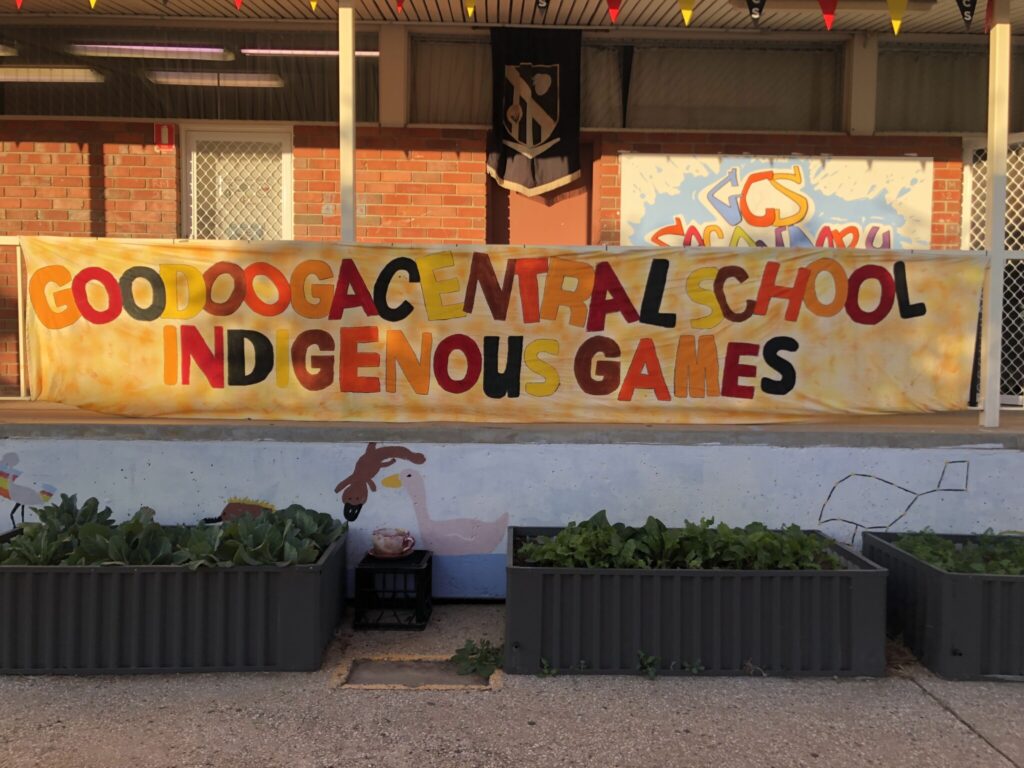 GCS
SECONDARY
GOODOOGA CENTRAL SCHOOL
INDIGENOUS GAMES